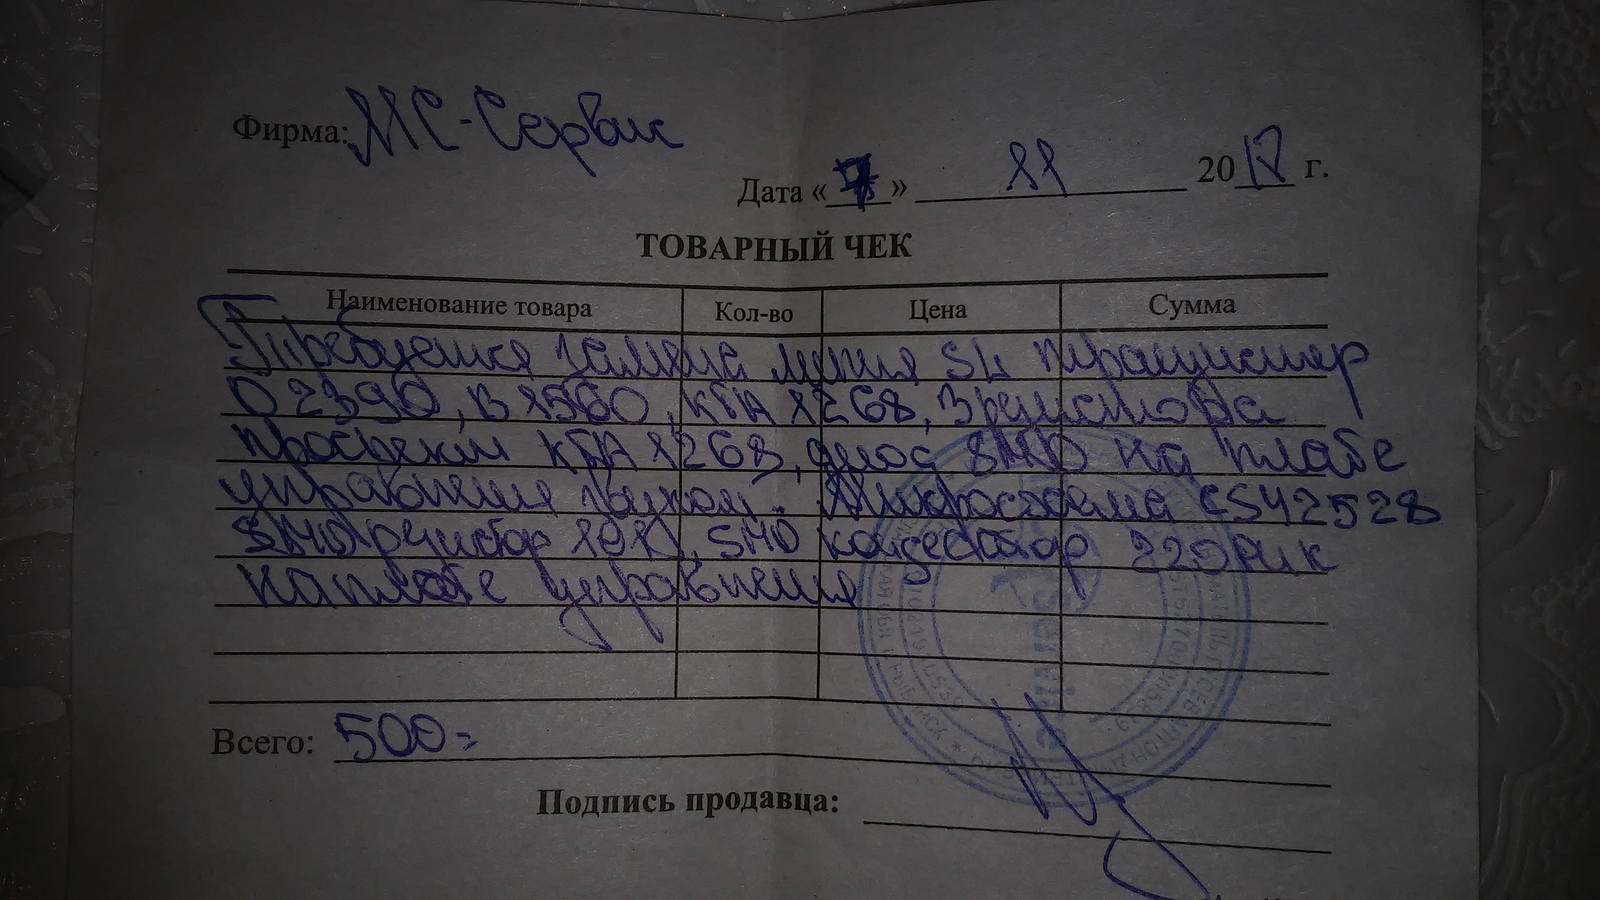 Фирма: МС-Сервис
Дата « » 11 2017 г.
ТОВАРНЫЙ ЧЕК
Наименование товара Кол-во Цена Сумма
Требуется замена линия SL транзистер
D2390, В1560, КТА1268, 3 резистора
просечки КТА1268, диод SMD на плате
управления звуком. Микросхема CS42528
SMD резистор 101, SMD конденсатор 220мк
на плате управления
Всего: 500=
Подпись продавца: